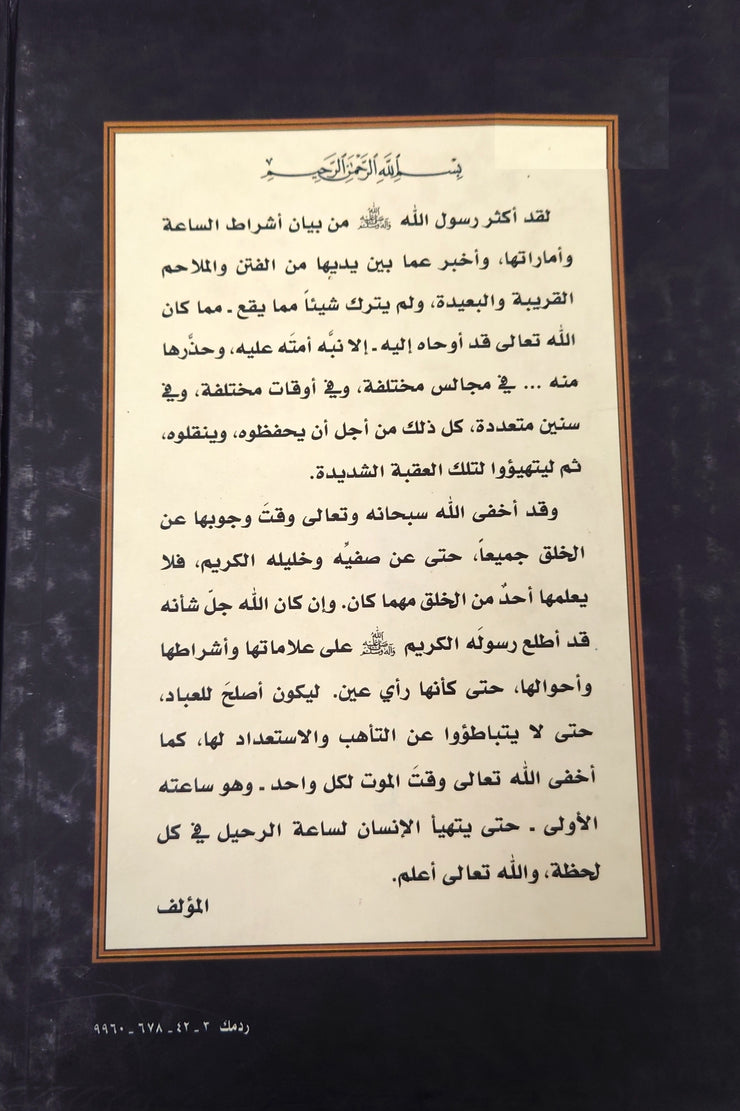 بِسْمِ اللَّهِ الرَّحْمَٰنِ الرَّحِيمِ
لقد أكثر رسول الله ﷺ من بيان أشراط الساعة
وأماراتها، وأخبر عما بين يديها من الفتن والملاحم
القريبة والبعيدة، ولم يترك شيئاً مما يقع ـ مما كان
الله تعالى قد أوحاه إليه ـ إلا نبَّه أمتَه عليه، وحذَّرها
منه ... في مجالس مختلفة، وفي أوقات مختلفة، وفي
سنين متعددة، كل ذلك من أجل أن يحفظوه، وينقلوه،
ثم ليتهيؤوا لتلك العقبة الشديدة.
وقد أخفى الله سبحانه وتعالى وقتَ وجوبها عن
الخلق جميعاً، حتى عن صفيِّه وخليله الكريم، فلا
يعلمها أحدٌ من الخلق مهما كان. وإن كان الله جلّ شأنه
قد أطلع رسولَه الكريم ﷺ على علاماتها وأشراطها
وأحوالها، حتى كأنها رأي عين. ليكون أصلحَ للعباد،
حتى لا يتباطؤوا عن التأهب والاستعداد لها، كما
أخفى الله تعالى وقتَ الموت لكل واحد ـ وهو ساعته
الأولى ـ حتى يتهيأ الإنسان لساعة الرحيل في كل
لحظة، والله تعالى أعلم.
المؤلف
ردمك ٣ ـ ٤٢ ـ ٦٧٨ ـ ٩٩٦٠